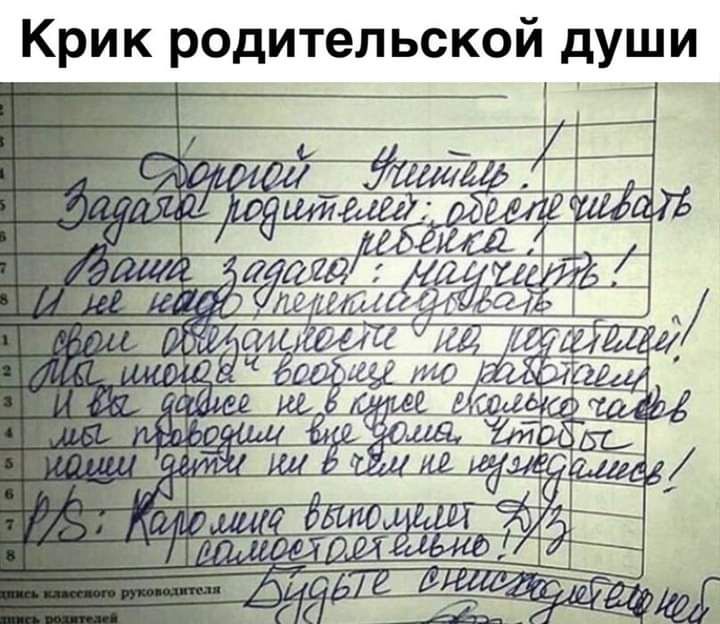 Крик родительской души
Дорогой Учитель!
Задача родителей: обеспечивать
ребёнка!
Ваша задача: научить!
И не надо перекладовать
свои обезанности на родителей!
Мы иногда вообще то работаем
И вы даже не в курсе сколько часов
мы проводим вне дома, чтобы
наши дети ни в чём не нуждались!
P/S: Каролина выполняет Д/З
самостоятельно!
Будьте снисходительней
дпись классного руководителя
дпись родителей